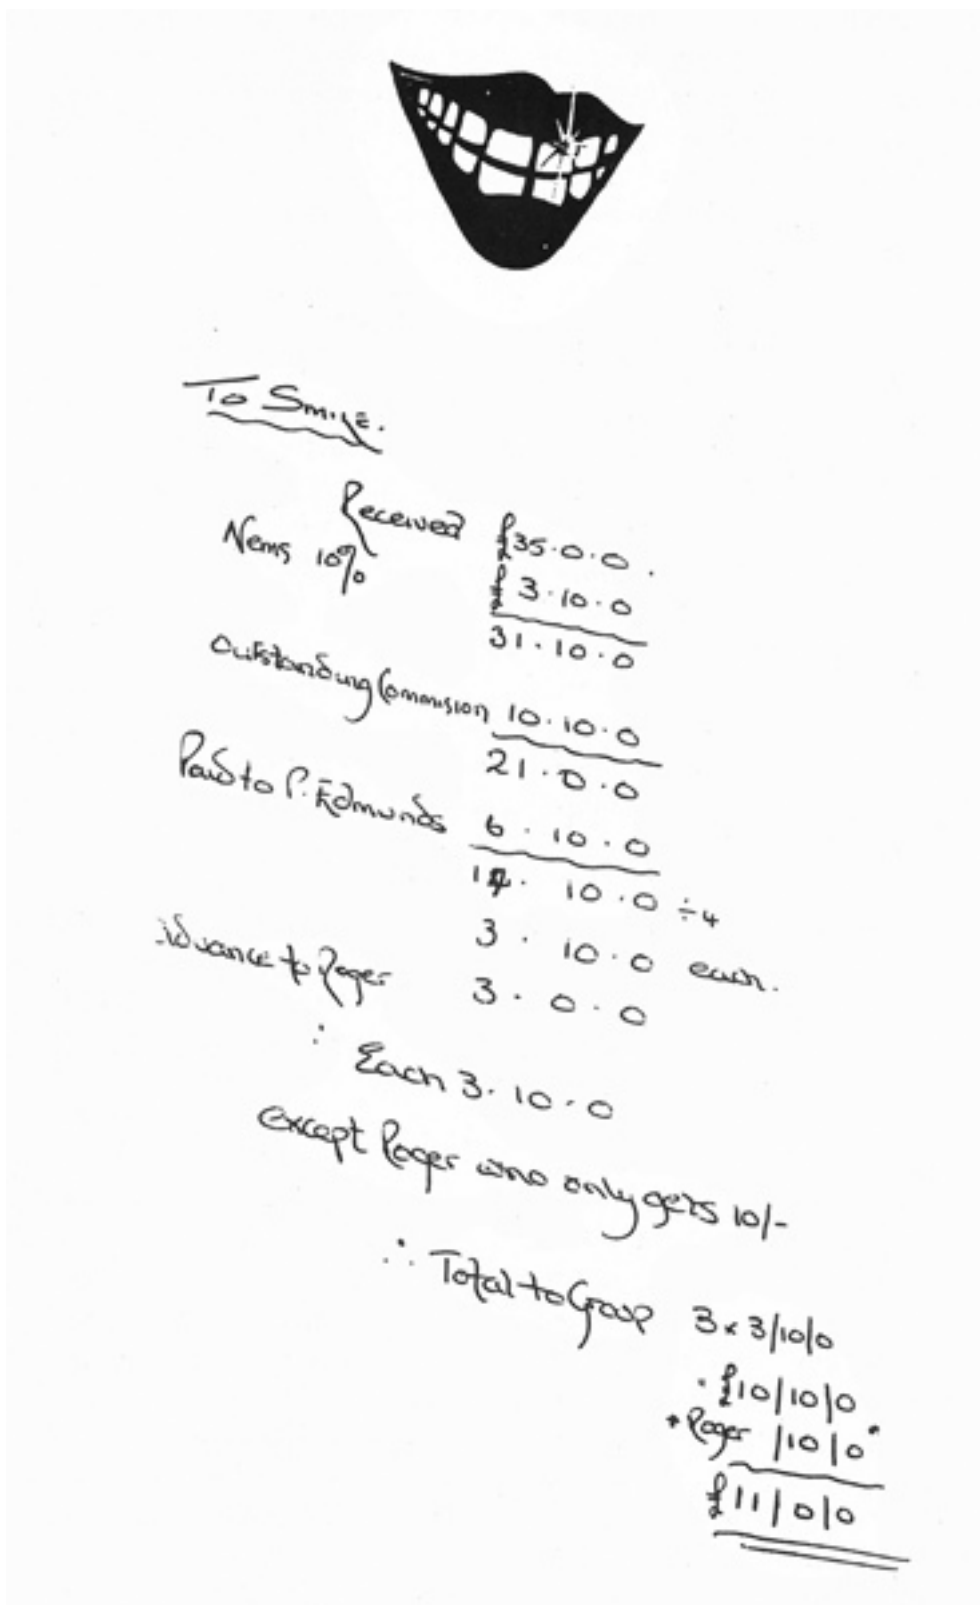 To Smile.
Received £35.0.0.
Nems 10% £ 3.10.0
31.10.0
Outstanding Commision 10.10.0
21.0.0
Paid to P. Edmunds 6.10.0
14.10.0 ÷4
3.10.0 each.
Advance to Roger 3.0.0
∴ Each 3.10.0
except Roger who only gets 10/-
∴ Total to Group 3x3/10/0
£10/10/0
+ Roger /10/0
£11/0/0